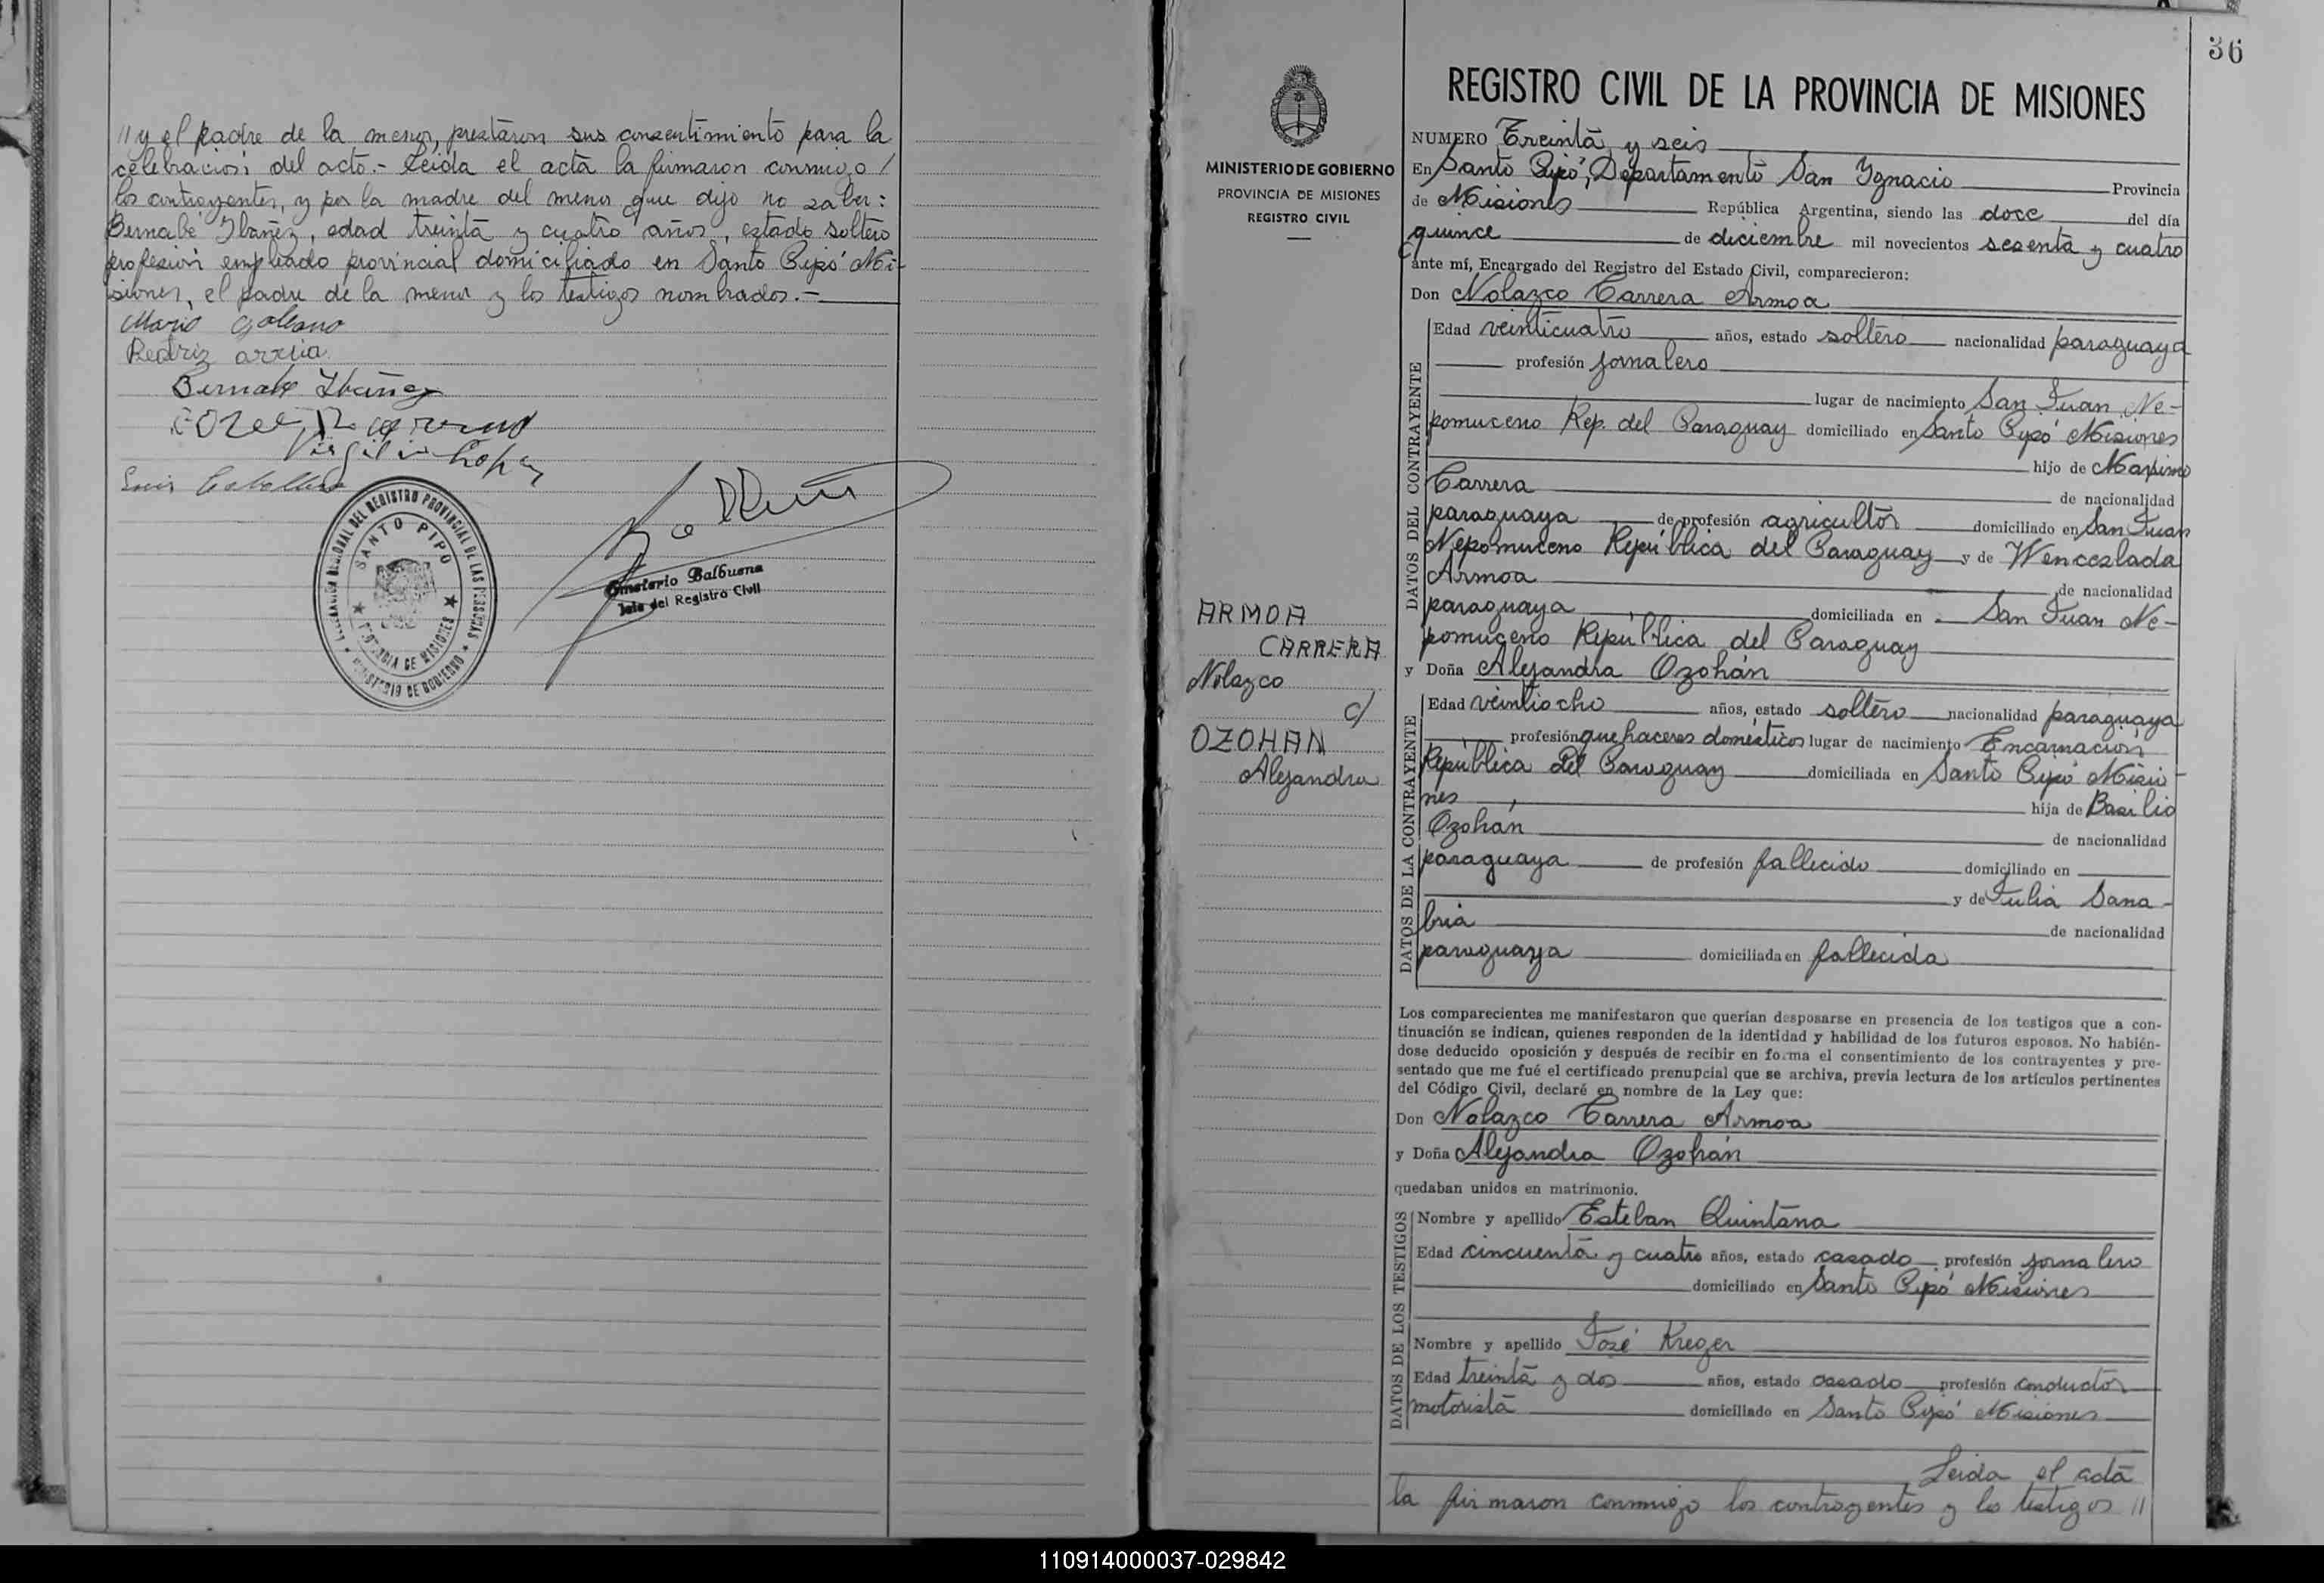 // y el padre de la menor, prestaron sus consentimiento para la
celebración del acto.- Leida el acta la firmaron conmigo /
los contrayentes, y por la madre del menor que dijo no saber:
Bernabé Ibañez, edad treinta y cuatro años, estado soltero
profesión empleado provincial domiciliado en Santo Pipó Mi-
siones, el padre de la menor y los testigos nombrados.-
Mario Galeano
Beatriz
Bernabe Ibañez
Virgilio Lopez
Luis Caballero
SANTO PIPO
PROVINCIA DE MISIONES
MINISTERIO DE GOBIERNO
Balbuena
Jefe del Registro Civil
36
REGISTRO CIVIL DE LA PROVINCIA DE MISIONES
MINISTERIO DE GOBIERNO
PROVINCIA DE MISIONES
REGISTRO CIVIL
ARMOA
CARRERA
Nolazco
c/
OZOHAN
Alejandra
NUMERO Treinta y seis
En Santo Pipó, Departamento San Ignacio Provincia
de Misiones República Argentina, siendo las doce del día
quince de diciembre mil novecientos sesenta y cuatro
ante mí, Encargado del Registro del Estado Civil, comparecieron:
Don Nolazco Carrera Armoa
DATOS DEL CONTRAYENTE
Edad veinticuatro años, estado soltero nacionalidad paraguaya
profesión jornalero
lugar de nacimiento San Juan Ne-
pomuceno Rep. del Paraguay domiciliado en Santo Pipó Misiones
hijo de Maximo
Carrera de nacionalidad
paraguaya de profesión agricultor domiciliado en San Juan
Nepomuceno República del Paraguay y de Wenceslada
Armoa de nacionalidad
paraguaya domiciliada en San Juan Ne-
pomuceno República del Paraguay
y Doña Alejandra Ozohán
DATOS DE LA CONTRAYENTE
Edad veintiocho años, estado soltero nacionalidad paraguaya
profesión quehaceres domésticos lugar de nacimiento Encarnación
República del Paraguay domiciliada en Santo Pipó Misio-
nes, hija de Basilio
Ozohán de nacionalidad
paraguaya de profesión fallecido domiciliado en
y de Julia Sana-
bria de nacionalidad
paraguaya domiciliada en fallecida
Los comparecientes me manifestaron que querían desposarse en presencia de los testigos que a con-
tinuación se indican, quienes responden de la identidad y habilidad de los futuros esposos. No habién-
dose deducido oposición y después de recibir en forma el consentimiento de los contrayentes y pre-
sentado que me fué el certificado prenupcial que se archiva, previa lectura de los artículos pertinentes
del Código Civil, declaré en nombre de la Ley que:
Don Nolazco Carrera Armoa
y Doña Alejandra Ozohán
quedaban unidos en matrimonio.
DATOS DE LOS TESTIGOS
Nombre y apellido Esteban Quintana
Edad cincuenta y cuatro años, estado casado profesión jornalero
domiciliado en Santo Pipó Misiones
Nombre y apellido José Kreger
Edad treinta y dos años, estado casado profesión conductor
motorista domiciliado en Santo Pipó Misiones
Leida el acta
la firmaron conmigo los contrayentes y los testigos //
110914000037-029842